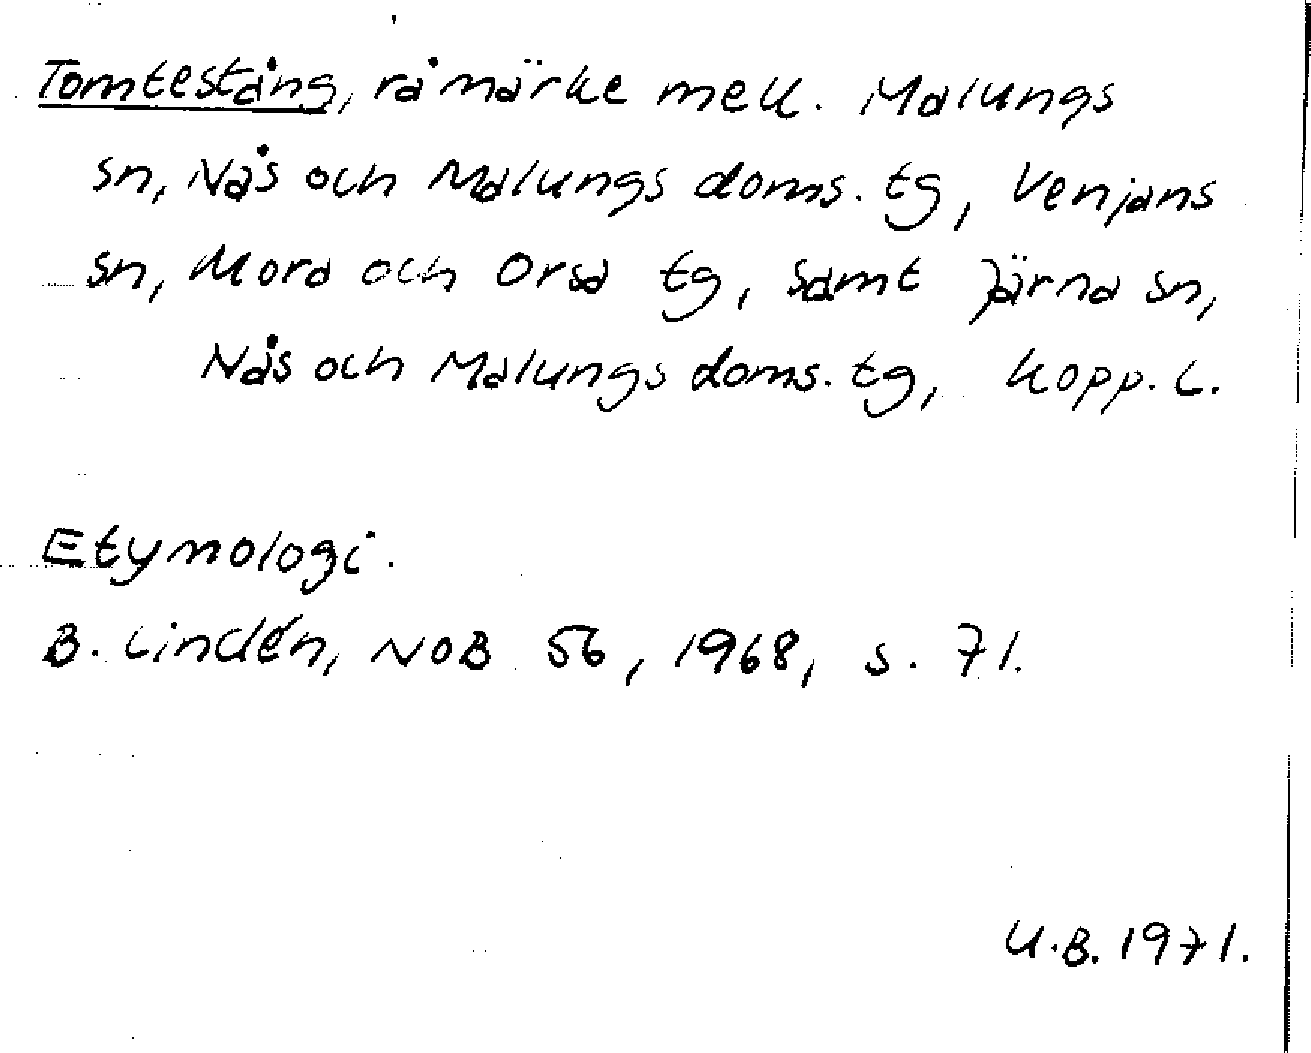 Tomtestång, råmärke mell. Malungs
sn, Nås och Malungs doms. tg, Venjans
sn, Mora och Orsa tg, samt Järna sn,
Nås och Malungs doms. tg, Kopp. L.
Etymologi.
B. Lindén, NoB 56, 1968, s. 71.
U.B. 1971.